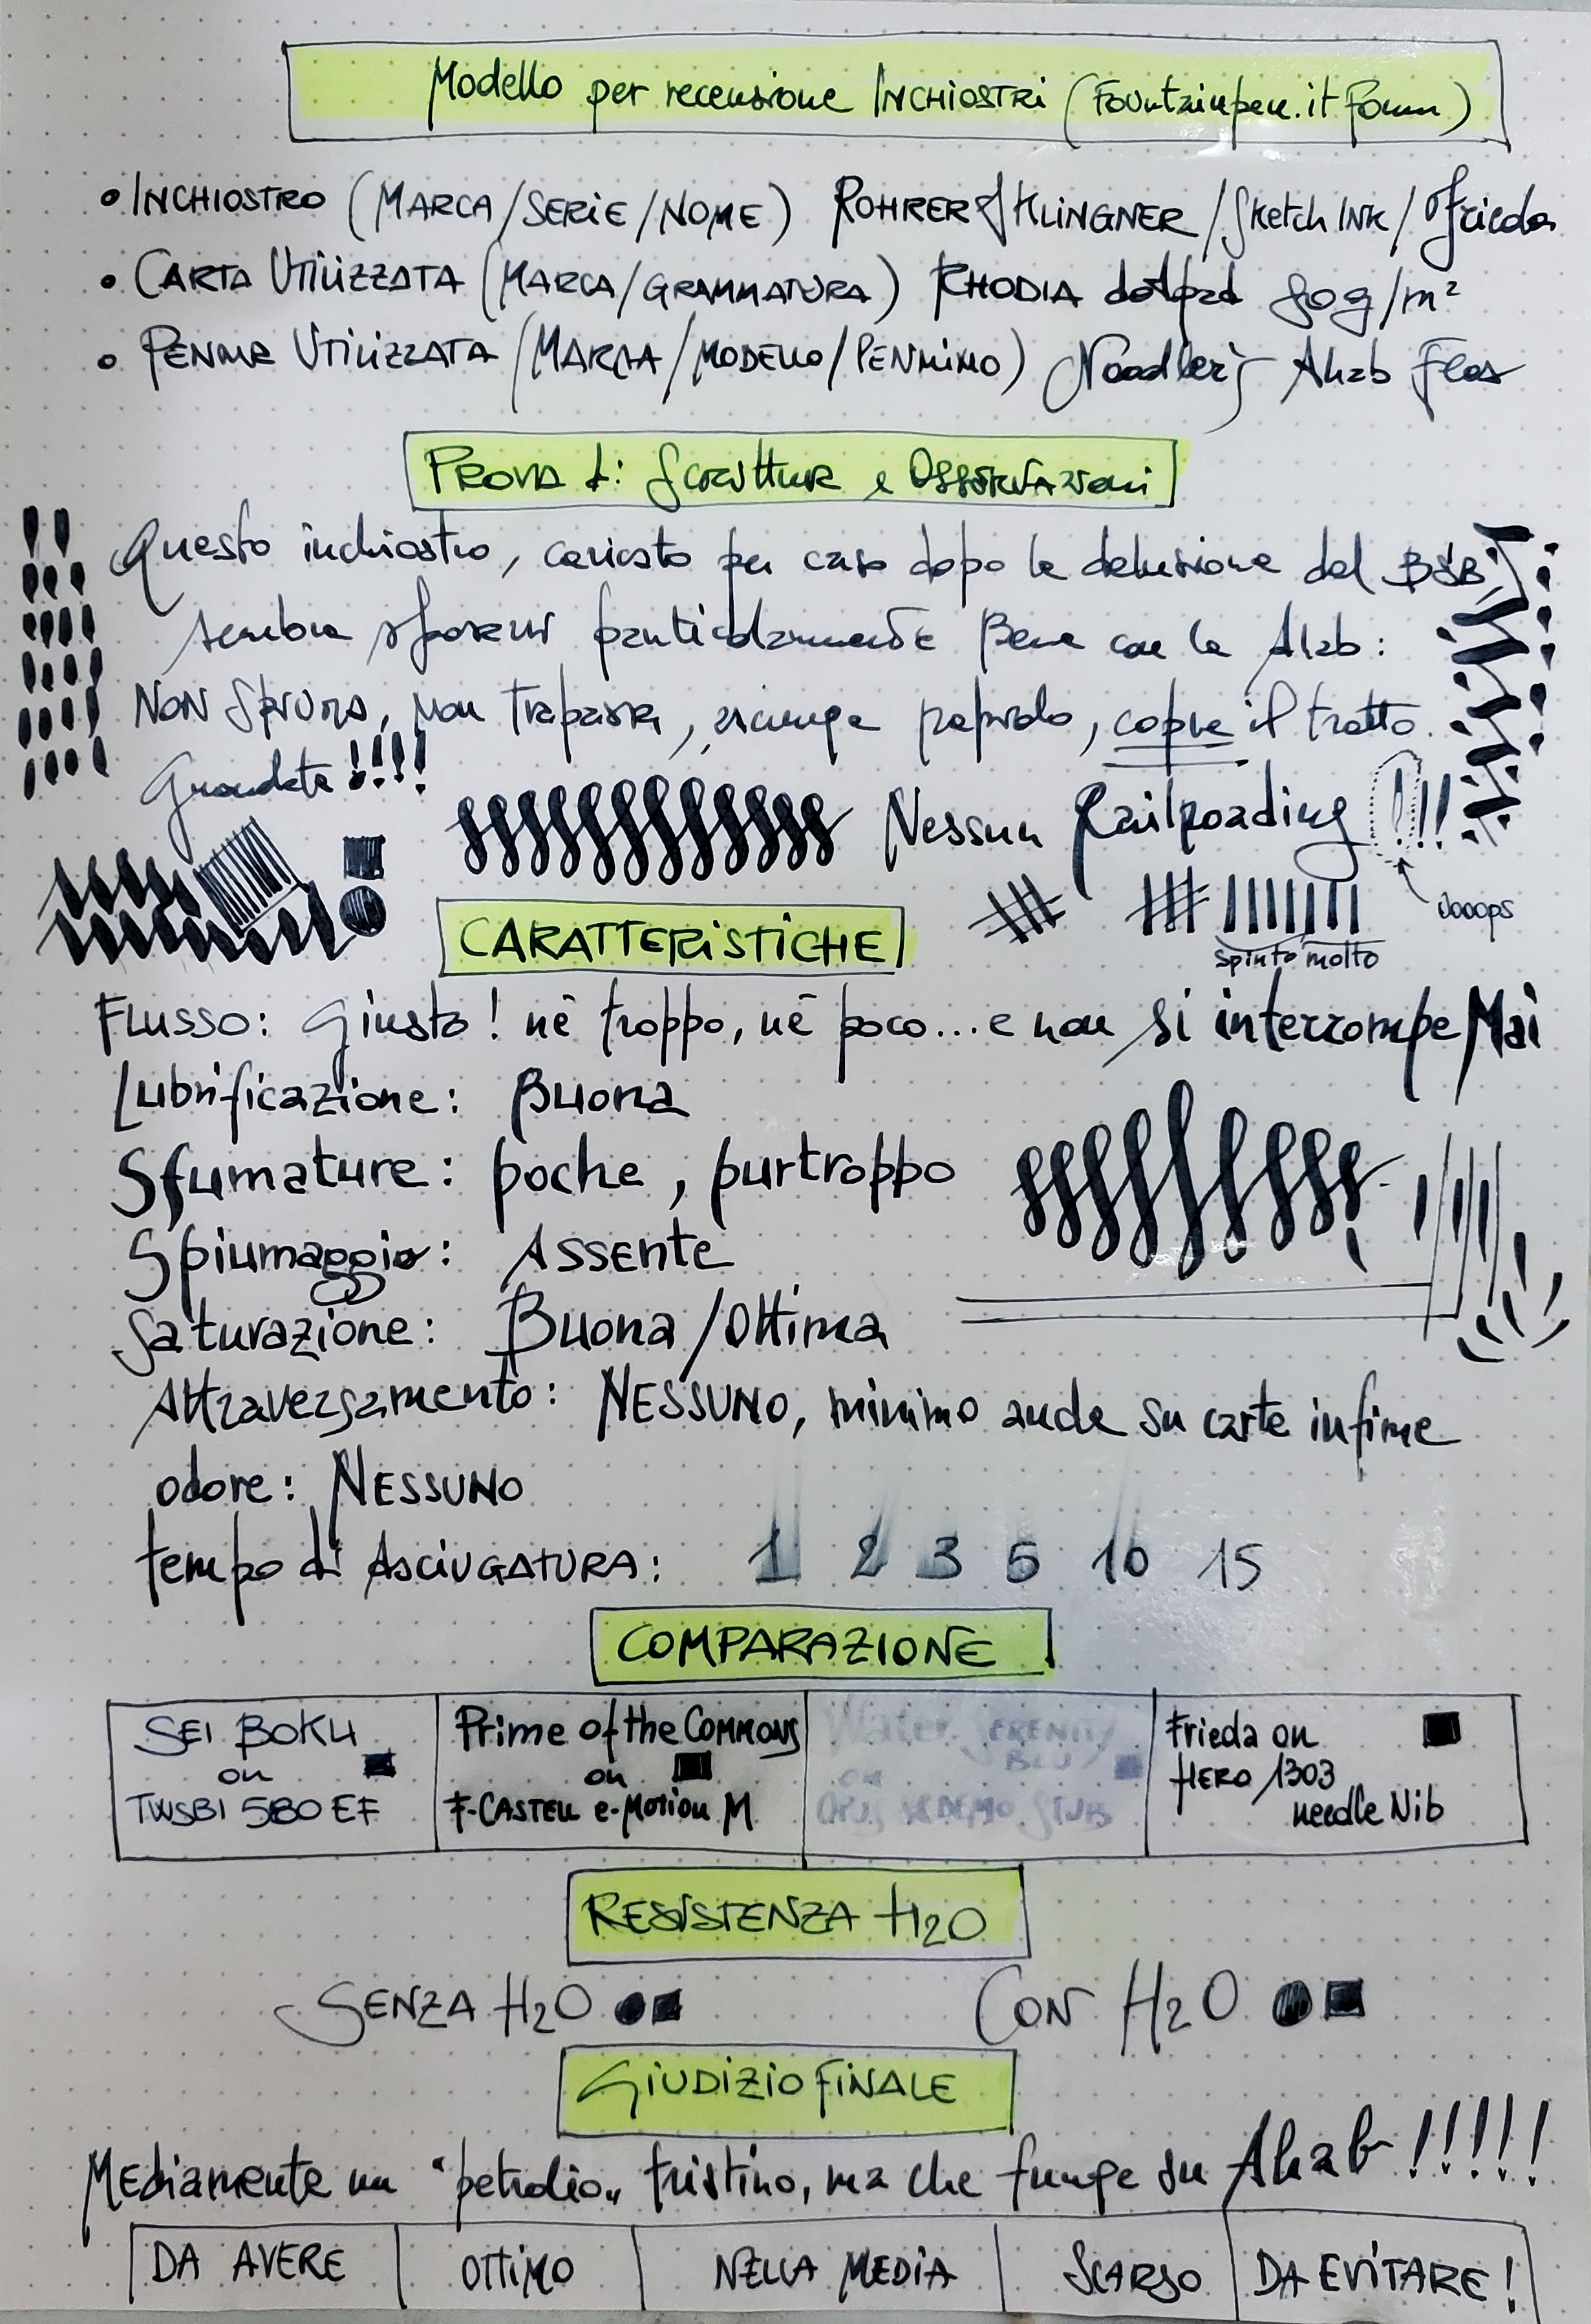 Modello per recensione INCHIOSTRI (Fountainpen.it Forum)
• INCHIOSTRO (MARCA/SERIE/NOME) ROHRER & KLINGNER / Sketch INK / Frieda
• CARTA UTILIZZATA (MARCA/GRAMMATURA) RHODIA dotpad 80g/m²
• PENNA UTILIZZATA (MARCA/MODELLO/PENNINO) Noodler's Ahab Flex
PROVA di Scrittura e Osservazioni
Questo inchiostro, caricato per caso dopo la delusione del B&B,
sembra sposarsi particolarmente Bene con la Ahab:
NON Spiuma, non trapassa, asciuga rapido, copre il tratto.
Grondate !!!!
Nessun Railroading !!!
Oooops
spinto molto
CARATTERISTICHE
FLUSSO: Giusto! nè troppo, nè poco... e non si interrompe Mai
Lubrificazione: Buona
Sfumature: poche, purtroppo
Spiumaggio: ASSENTE
Saturazione: Buona/Ottima
Attraversamento: NESSUNO, minimo anche su carte infime
odore: NESSUNO
tempo di ASCIUGATURA: 1 2 3 5 10 15
COMPARAZIONE
SEI BOKU
on
TWSBI 580 EF
Prime of the COMMONS
on
F-CASTELL e-Motion M
Water SERENITY
BLU
on
OPUS DEMO STUB
Frieda on
HERO 1303
needle Nib
RESISTENZA H2O
SENZA H2O
CON H2O
GIUDIZIO FINALE
Mediamente un "petrolio" tristino, ma che funge su Ahab !!!!!
DA AVERE
OTTIMO
NELLA MEDIA
SCARSO
DA EVITARE!